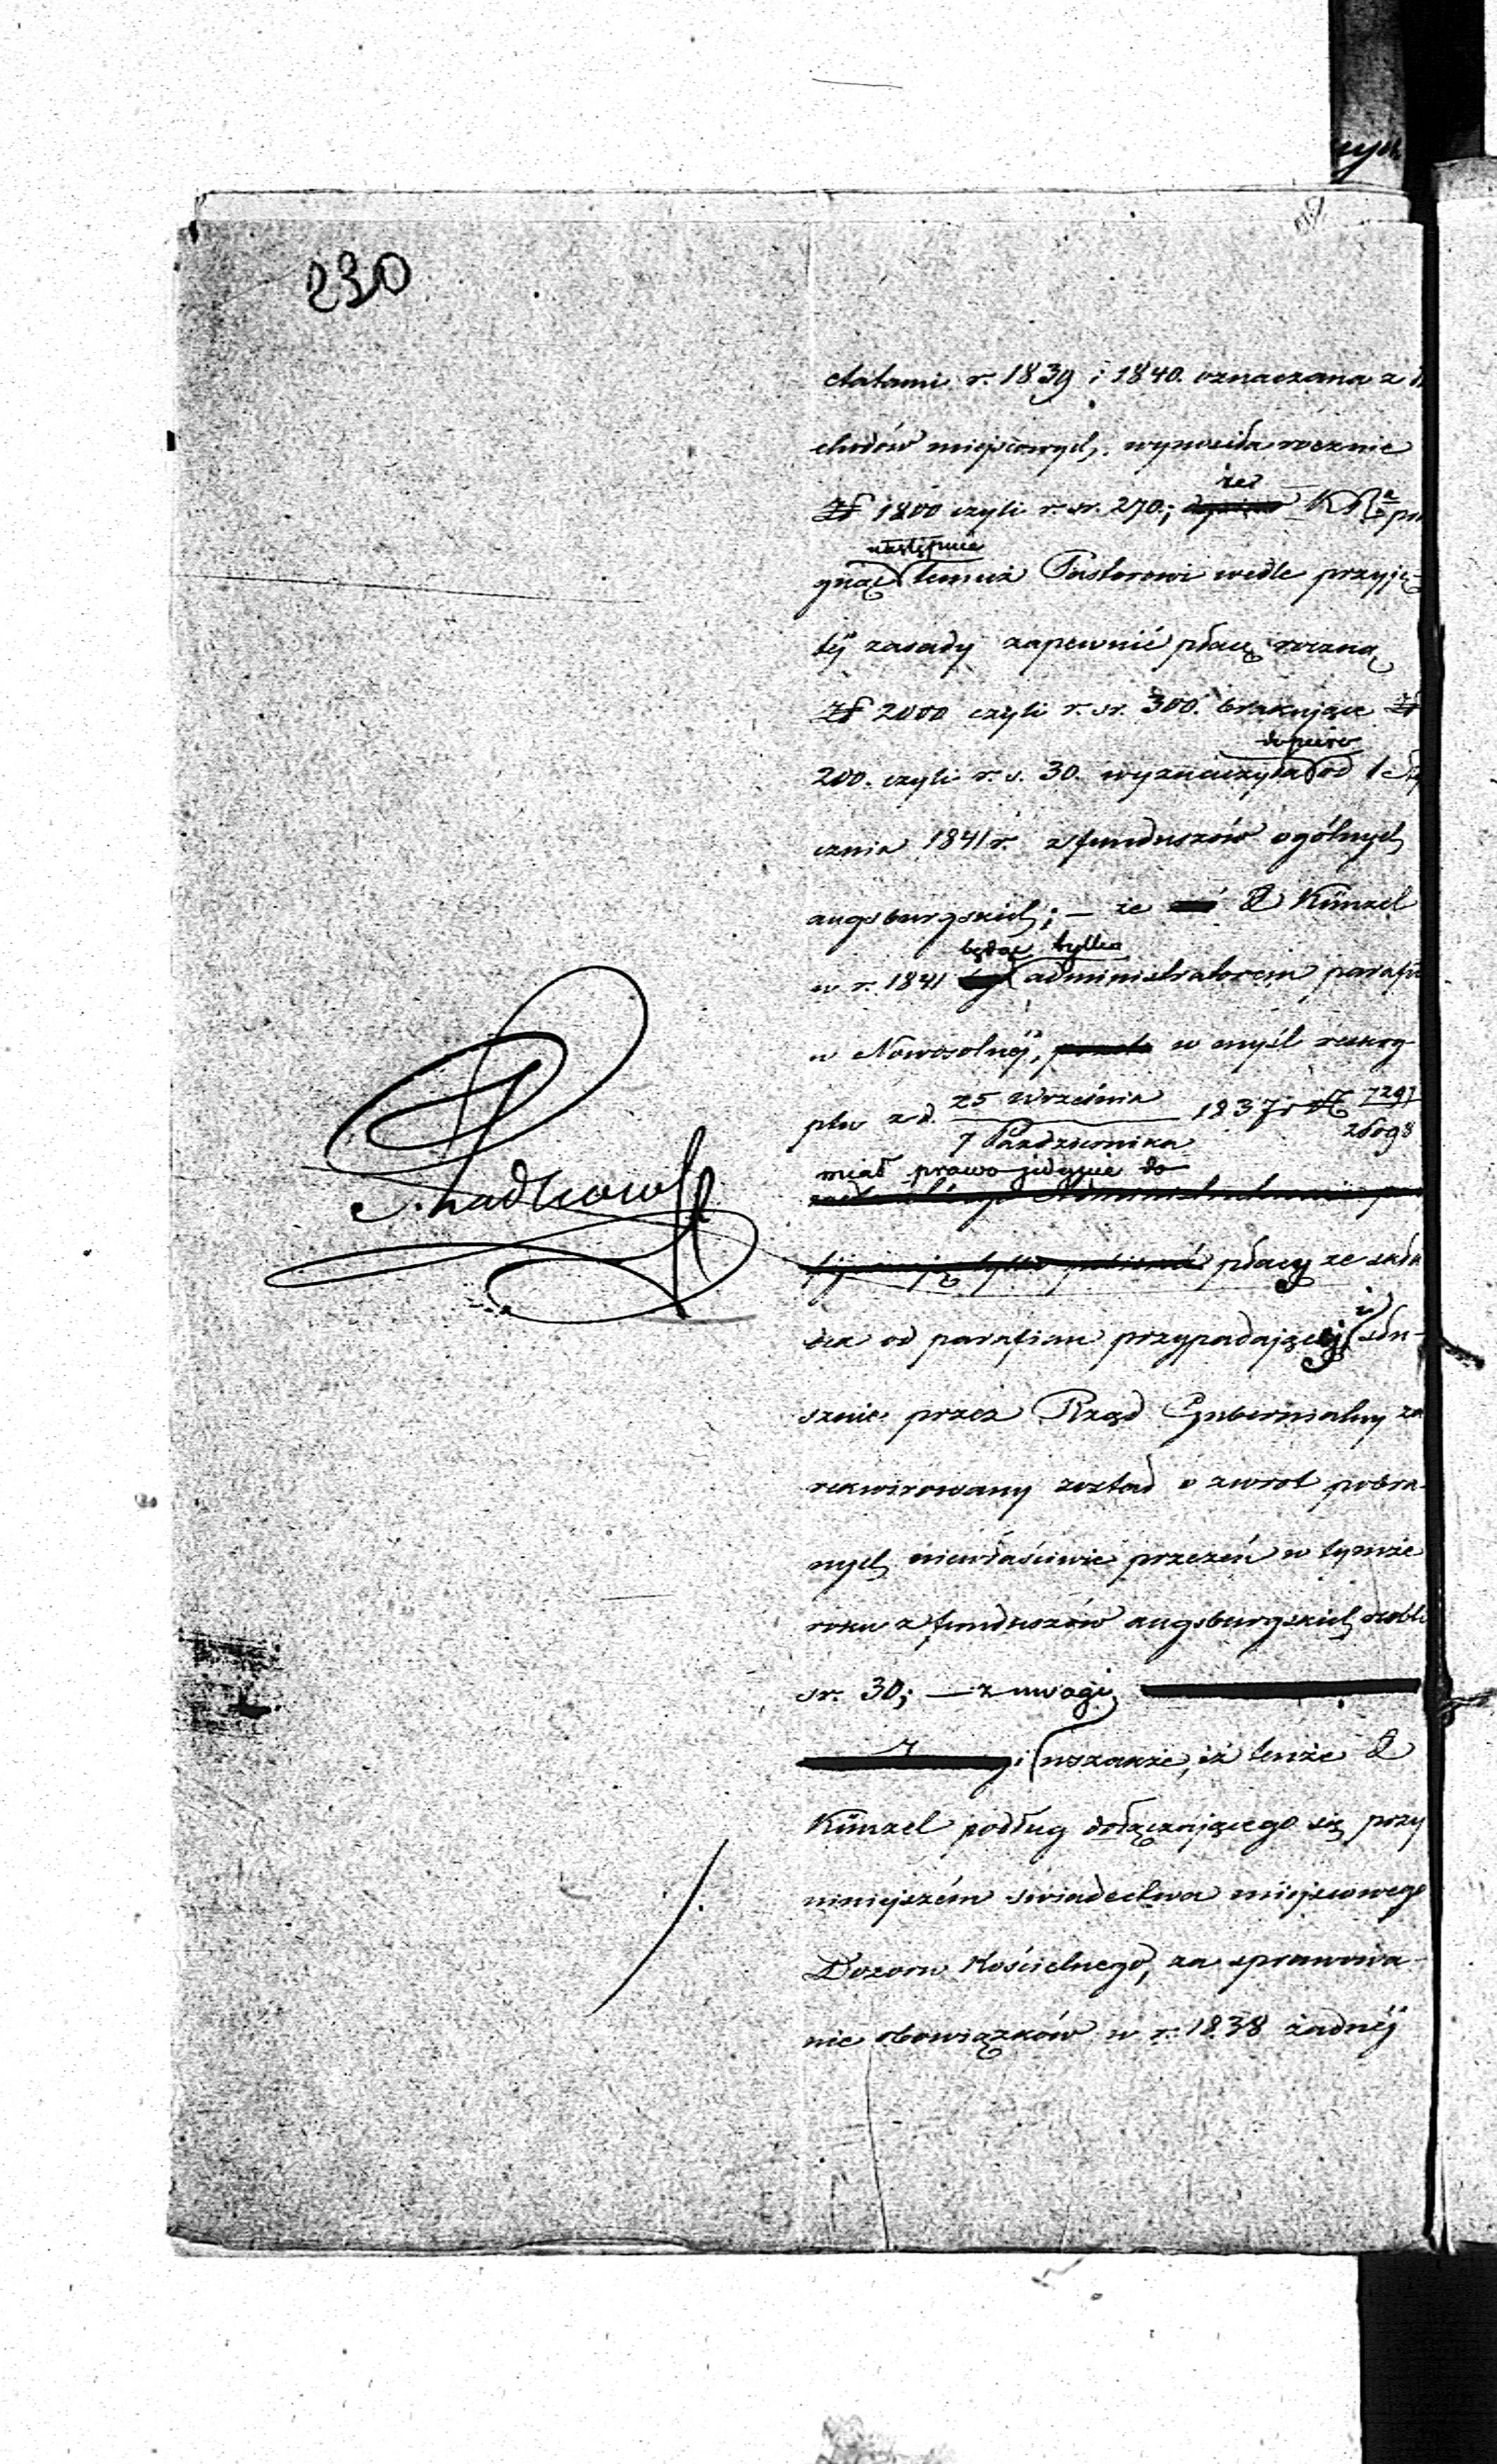 230
etatami r. 1839 i 1840. oznaczana z
chodów miejscowych, wynosiła rocznie
że
Zł 1800 czyli r. sr. 270.; KR
następnie
gnąc temuż Pastorowi wedle przyję-
téj zasady zapewnić płacę roczną
Zł 2000 czyli r. sr. 300. brakujące Zł
dopiero
200. czyli r. s. 30. wyznaczyła od 1 St
cznia 1841 r. z funduszów ogólnych
augsburgskich; — że X Künzel
będąc tylko
w r. 1841 administratorem parafii
w Nowosolnéj, w myśl reskry-
ptu z d. 25 Września / 7 Października 1837 r. N 7297 / 26098
miał prawo jedynie do
płacy ze skła
dek od parafian przypadającej i słu-
sznie przez Rząd Gubernialny za
rekwirowany został o zwrot pobra-
nych niewłaściwie przezeń w tymże
roku z funduszów augsburgskich rubli
sr. 30; — z uwagi
wszakże, iż tenże X
Künzel podług dołączającego się przy
niniejszém świadectwa miejscowego
Dozoru Kościelnego, za sprawowa-
nie obowiązków w r. 1838 żadnéj